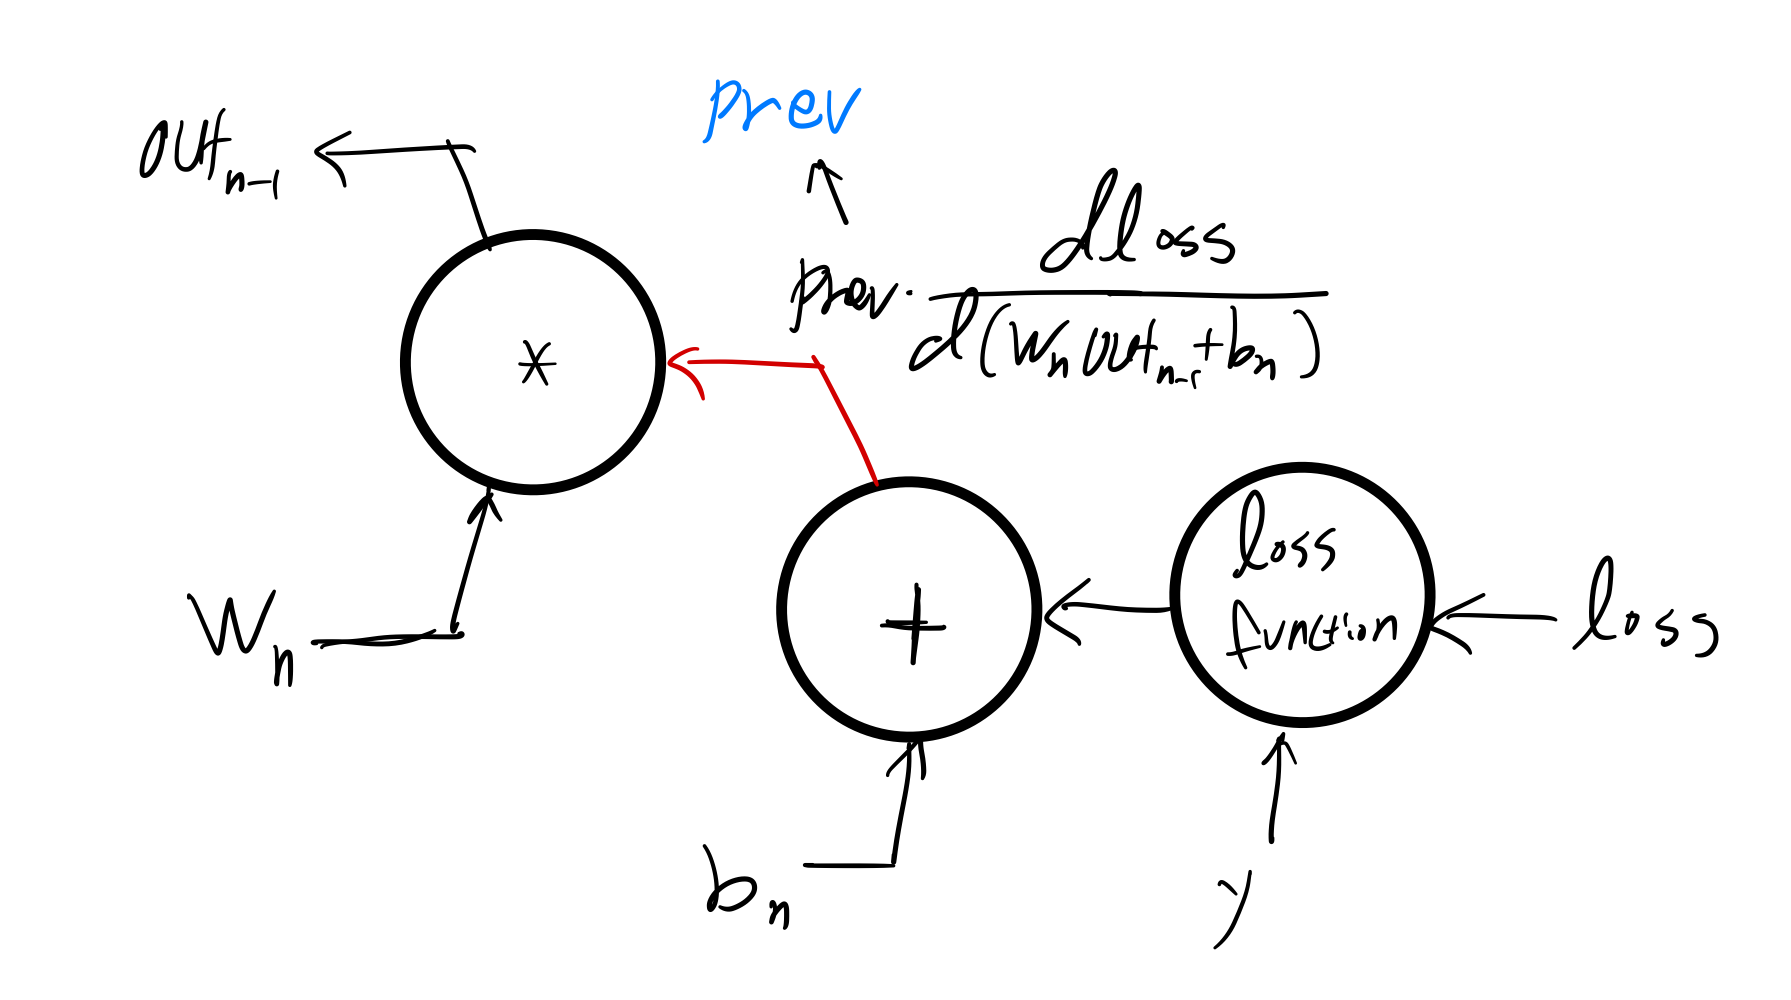 prev
out_{n-1}
prev · dloss / d(W_n out_{n-1} + b_n)
*
W_n
+
loss
function
loss
b_n
y